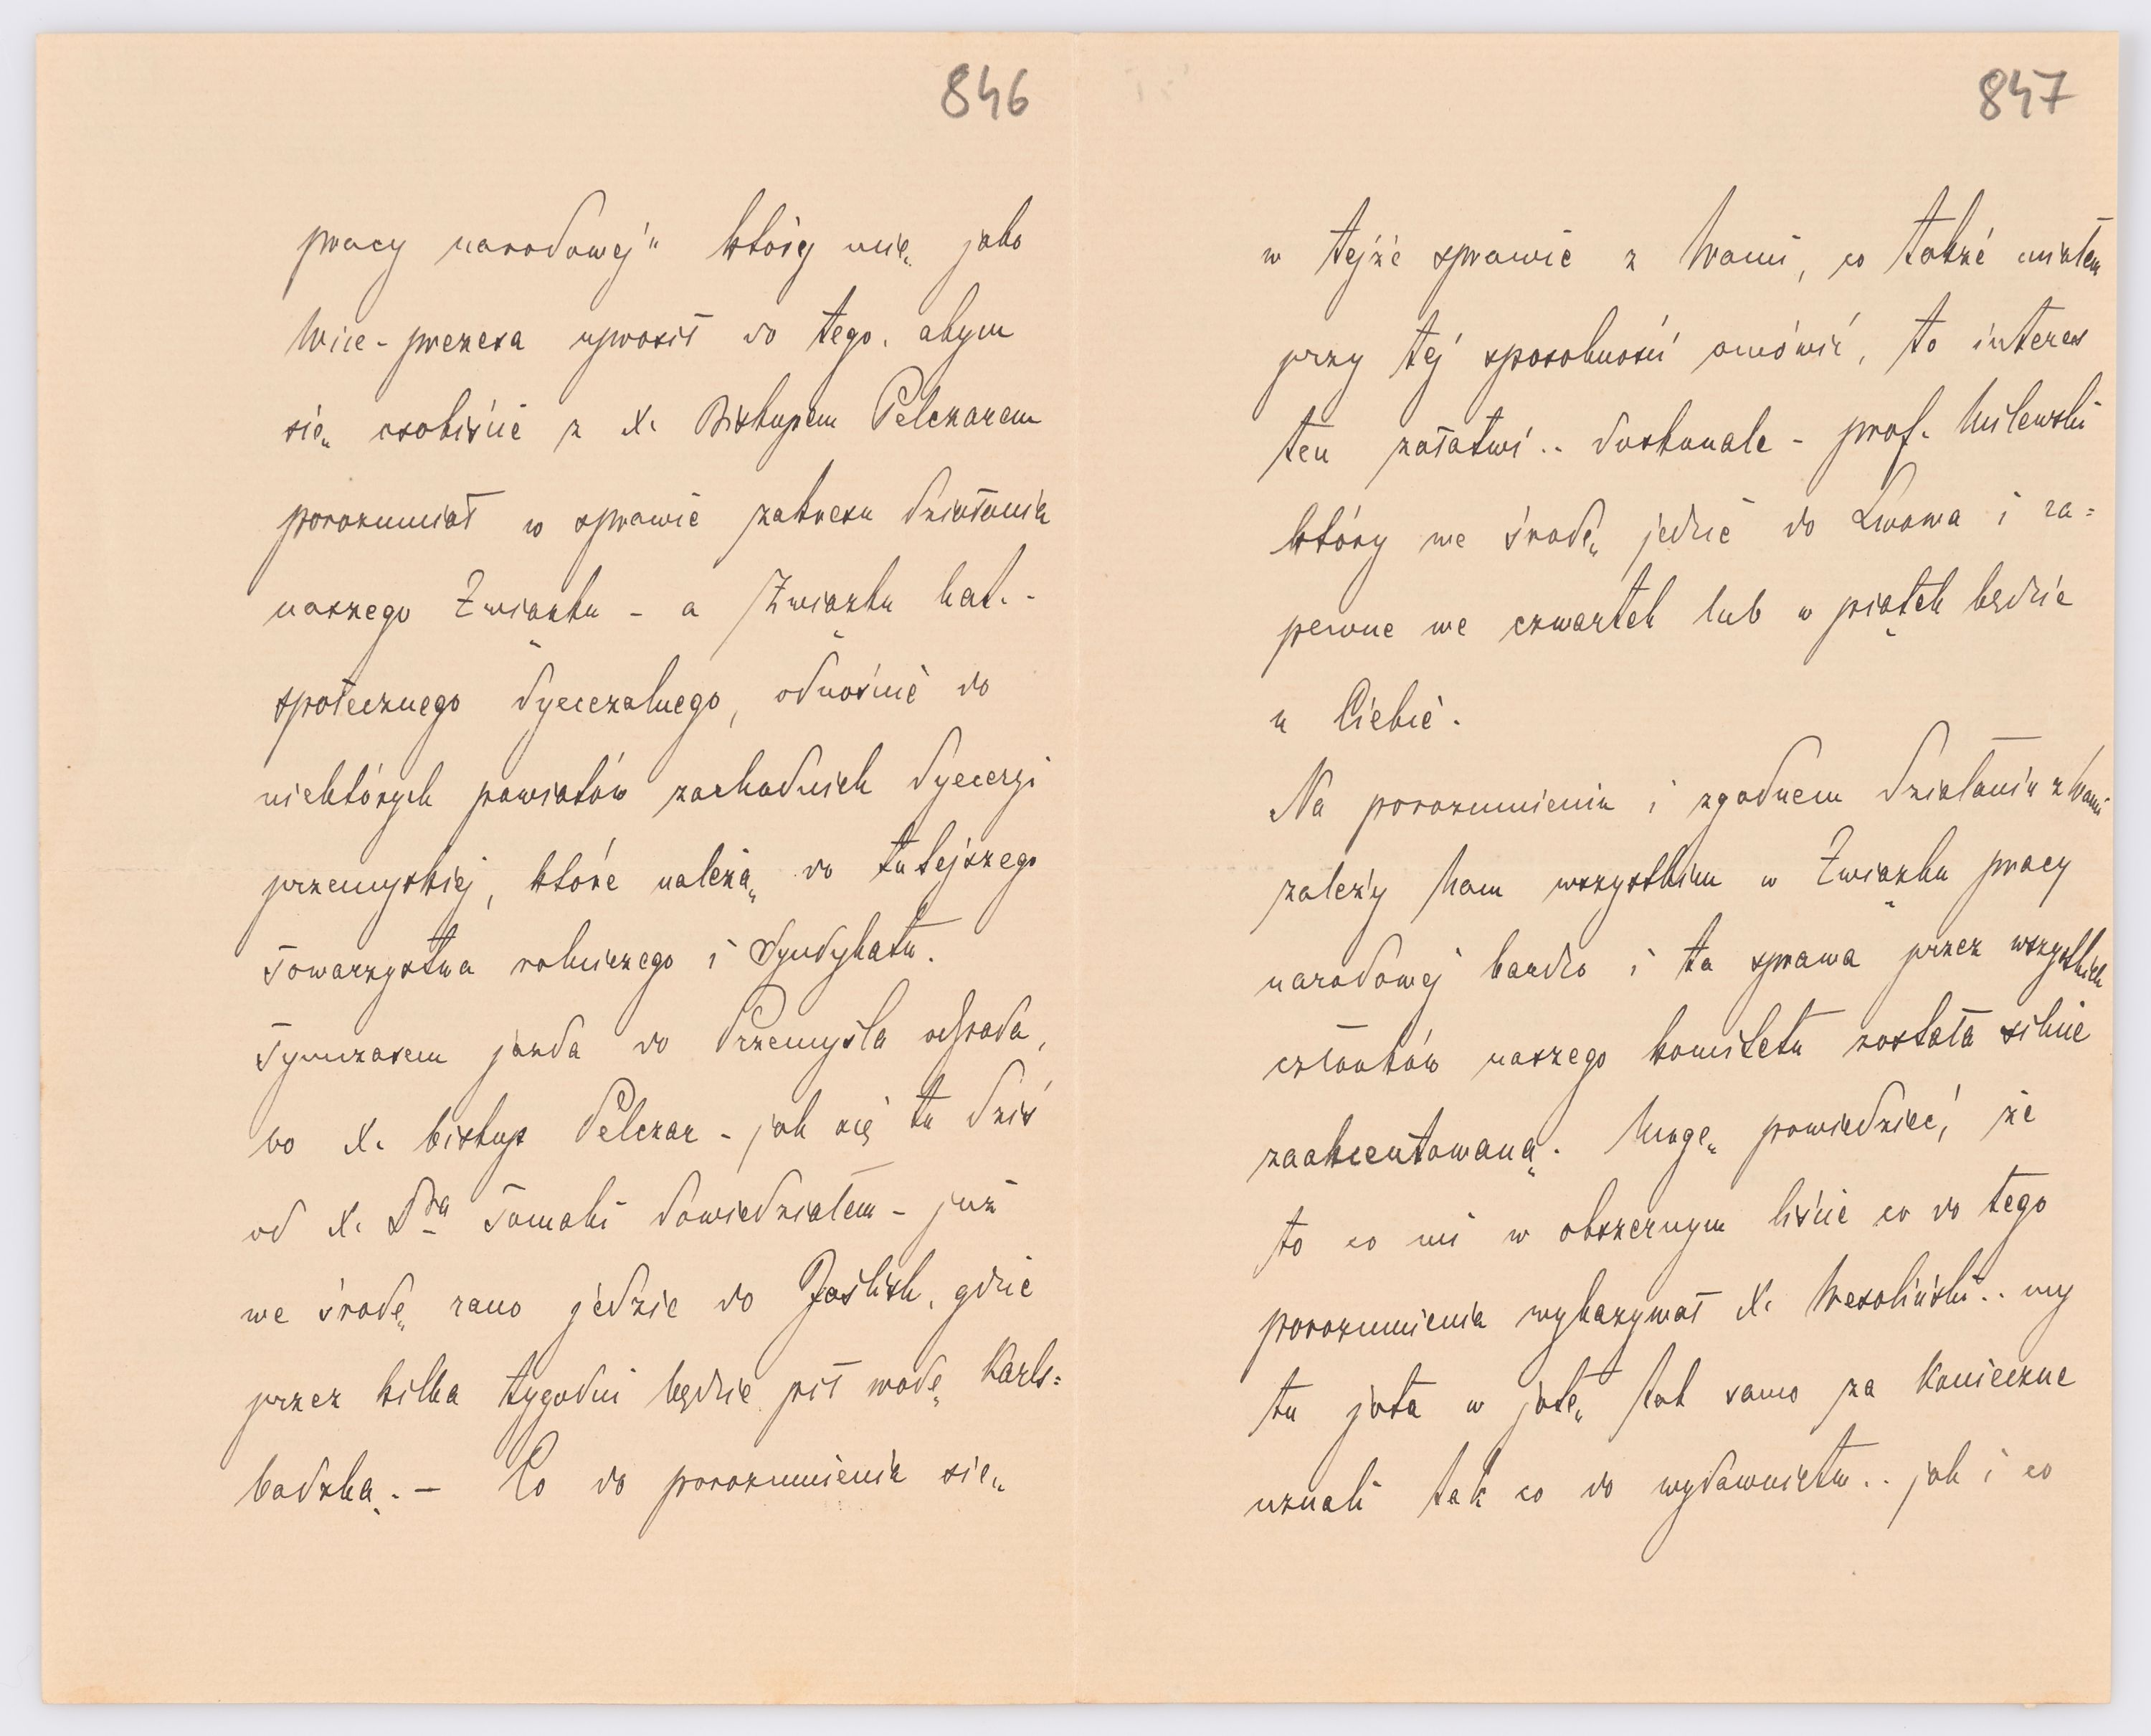 846
pracy narodowej" który mię jako
Wice-prezesa uprosił do tego, abym
się osobiście z X. Biskupem Pelczarem
porozumiał w sprawie zakresu działania
naszego Związku - a Związku kat. -
społecznego dyecezalnego, odnośnie do
niektórych powiatów zachodnich dyecezyi
przemyskiej, które należą do tutejszego
Towarzystwa rolniczego i Syndykatu.
Tymczasem jazda do Przemyśla odpada,
bo X. biskup Pelczar - jak się tu dziś
od X. Dra Tomaki dowiedziałem - już
we środę rano jedzie do Jaślisk, gdzie
przez kilka tygodni będzie pił wodę Karls=
badzką. — Co do porozumienia się
847
w tejże sprawie z Wami, co także miałem
przy tej sposobności omówić, to interes
ten załatwi .. doskonale - prof. Milewski
który we środę jedzie do Lwowa i za=
pewne we czwartek lub w piątek będzie
u Ciebie.
Na porozumieniu i zgodnem działaniu z Wami
zależy Nam wszystkim w Związku pracy
narodowej bardzo i ta sprawa przez wszystkich
członków naszego komitetu została silnie
zaakcentowaną. Mogę powiedzieć, że
to co mi w obszernym liście co do tego
porozumienia wykazywał X. Wesoliński .. my
tu jota w jotę tak samo za konieczne
uznali tak co do wydawnictw .. jak i co